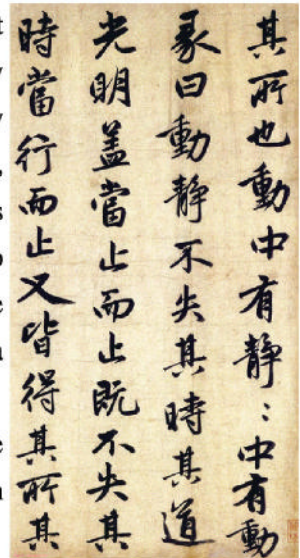 其所也動中有静〻中有動
彖曰動静不失其時其道
光明盖當止而止既不失其
時當行而止又皆得其所其